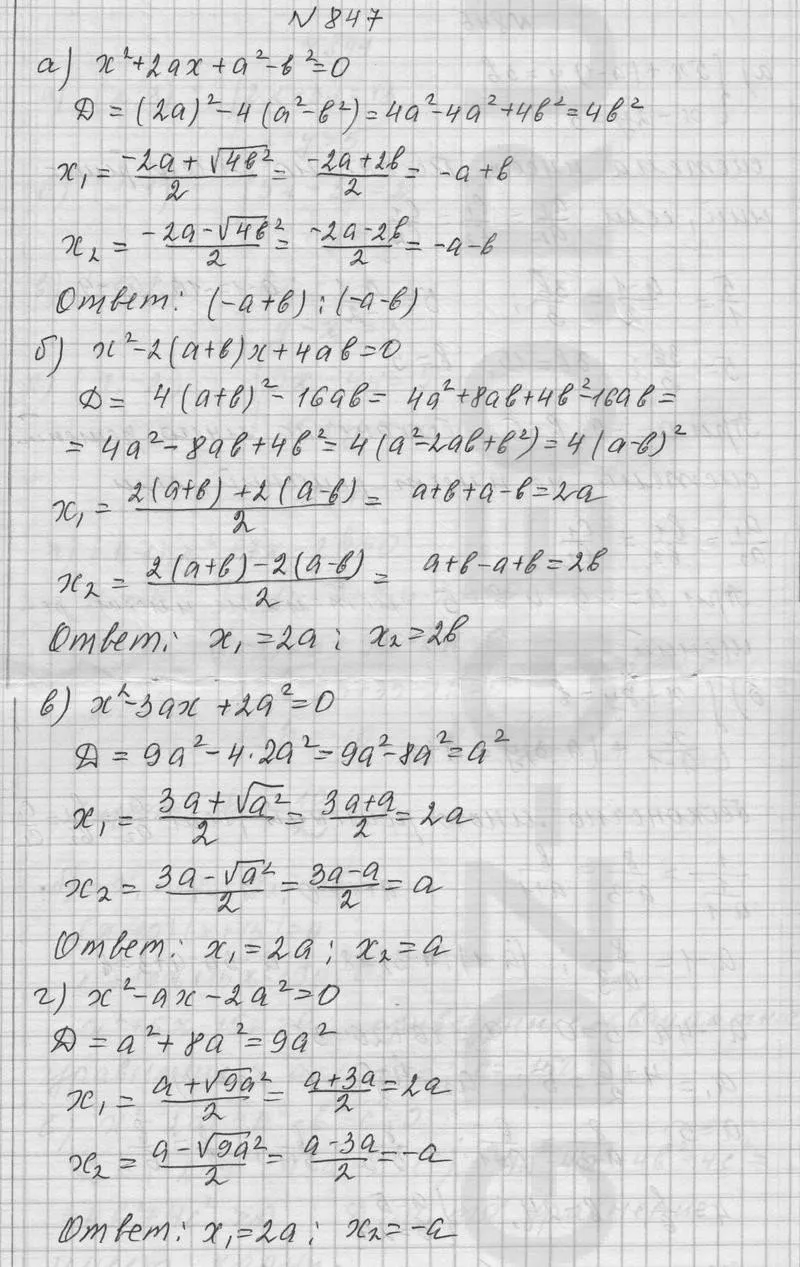 N 847
а) x²+2ax+a²-в²=0
D=(2a)²-4(a²-в²)=4a²-4a²+4в²=4в²
x₁=(-2a+√4в²)/2=(-2a+2в)/2=-a+в
x₂=(-2a-√4в²)/2=(-2a-2в)/2=-a-в
Ответ: (-a+в);(-a-в)
б) x²-2(a+в)x+4aв=0
D= 4(a+в)²-16aв= 4a²+8aв+4в²-16aв=
=4a²-8aв+4в²=4(a²-2aв+в²)=4(a-в)²
x₁=(2(a+в)+2(a-в))/2= a+в+a-в=2a
x₂=(2(a+в)-2(a-в))/2= a+в-a+в=2в
Ответ: x₁=2a; x₂=2в
в) x²-3ax+2a²=0
D=9a²-4·2a²=9a²-8a²=a²
x₁=(3a+√a²)/2=(3a+a)/2=2a
x₂=(3a-√a²)/2=(3a-a)/2=a
Ответ: x₁=2a; x₂=a
г) x²-ax-2a²=0
D=a²+8a²=9a²
x₁=(a+√9a²)/2=(a+3a)/2=2a
x₂=(a-√9a²)/2=(a-3a)/2=-a
Ответ: x₁=2a; x₂=-a